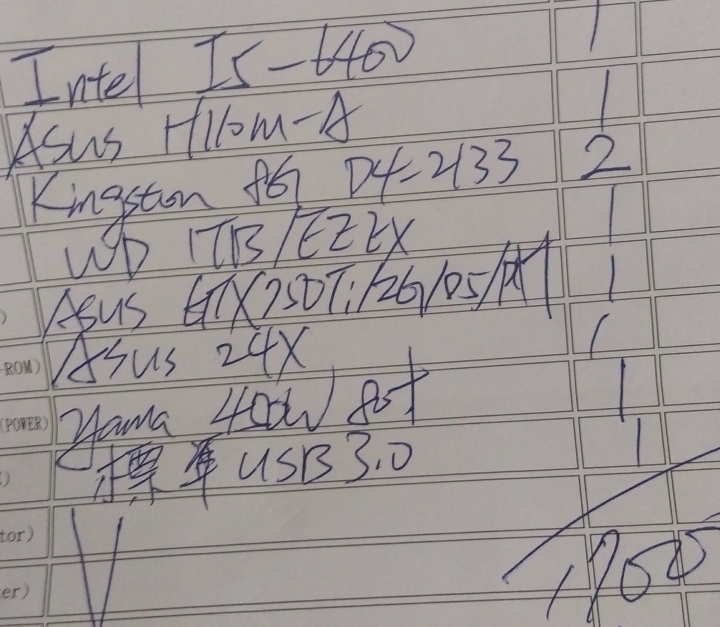 Intel I5-6400 1
Asus H110M-A 1
Kingston 8G D4-2133 2
WD 1TB/EZEX 1
) Asus GTX750Ti/2G/D5/ 1
-ROM) Asus 24X 1
(POWER) Yama 400W 80+ 1
) 標準 USB3.0 1
tor)
ter)